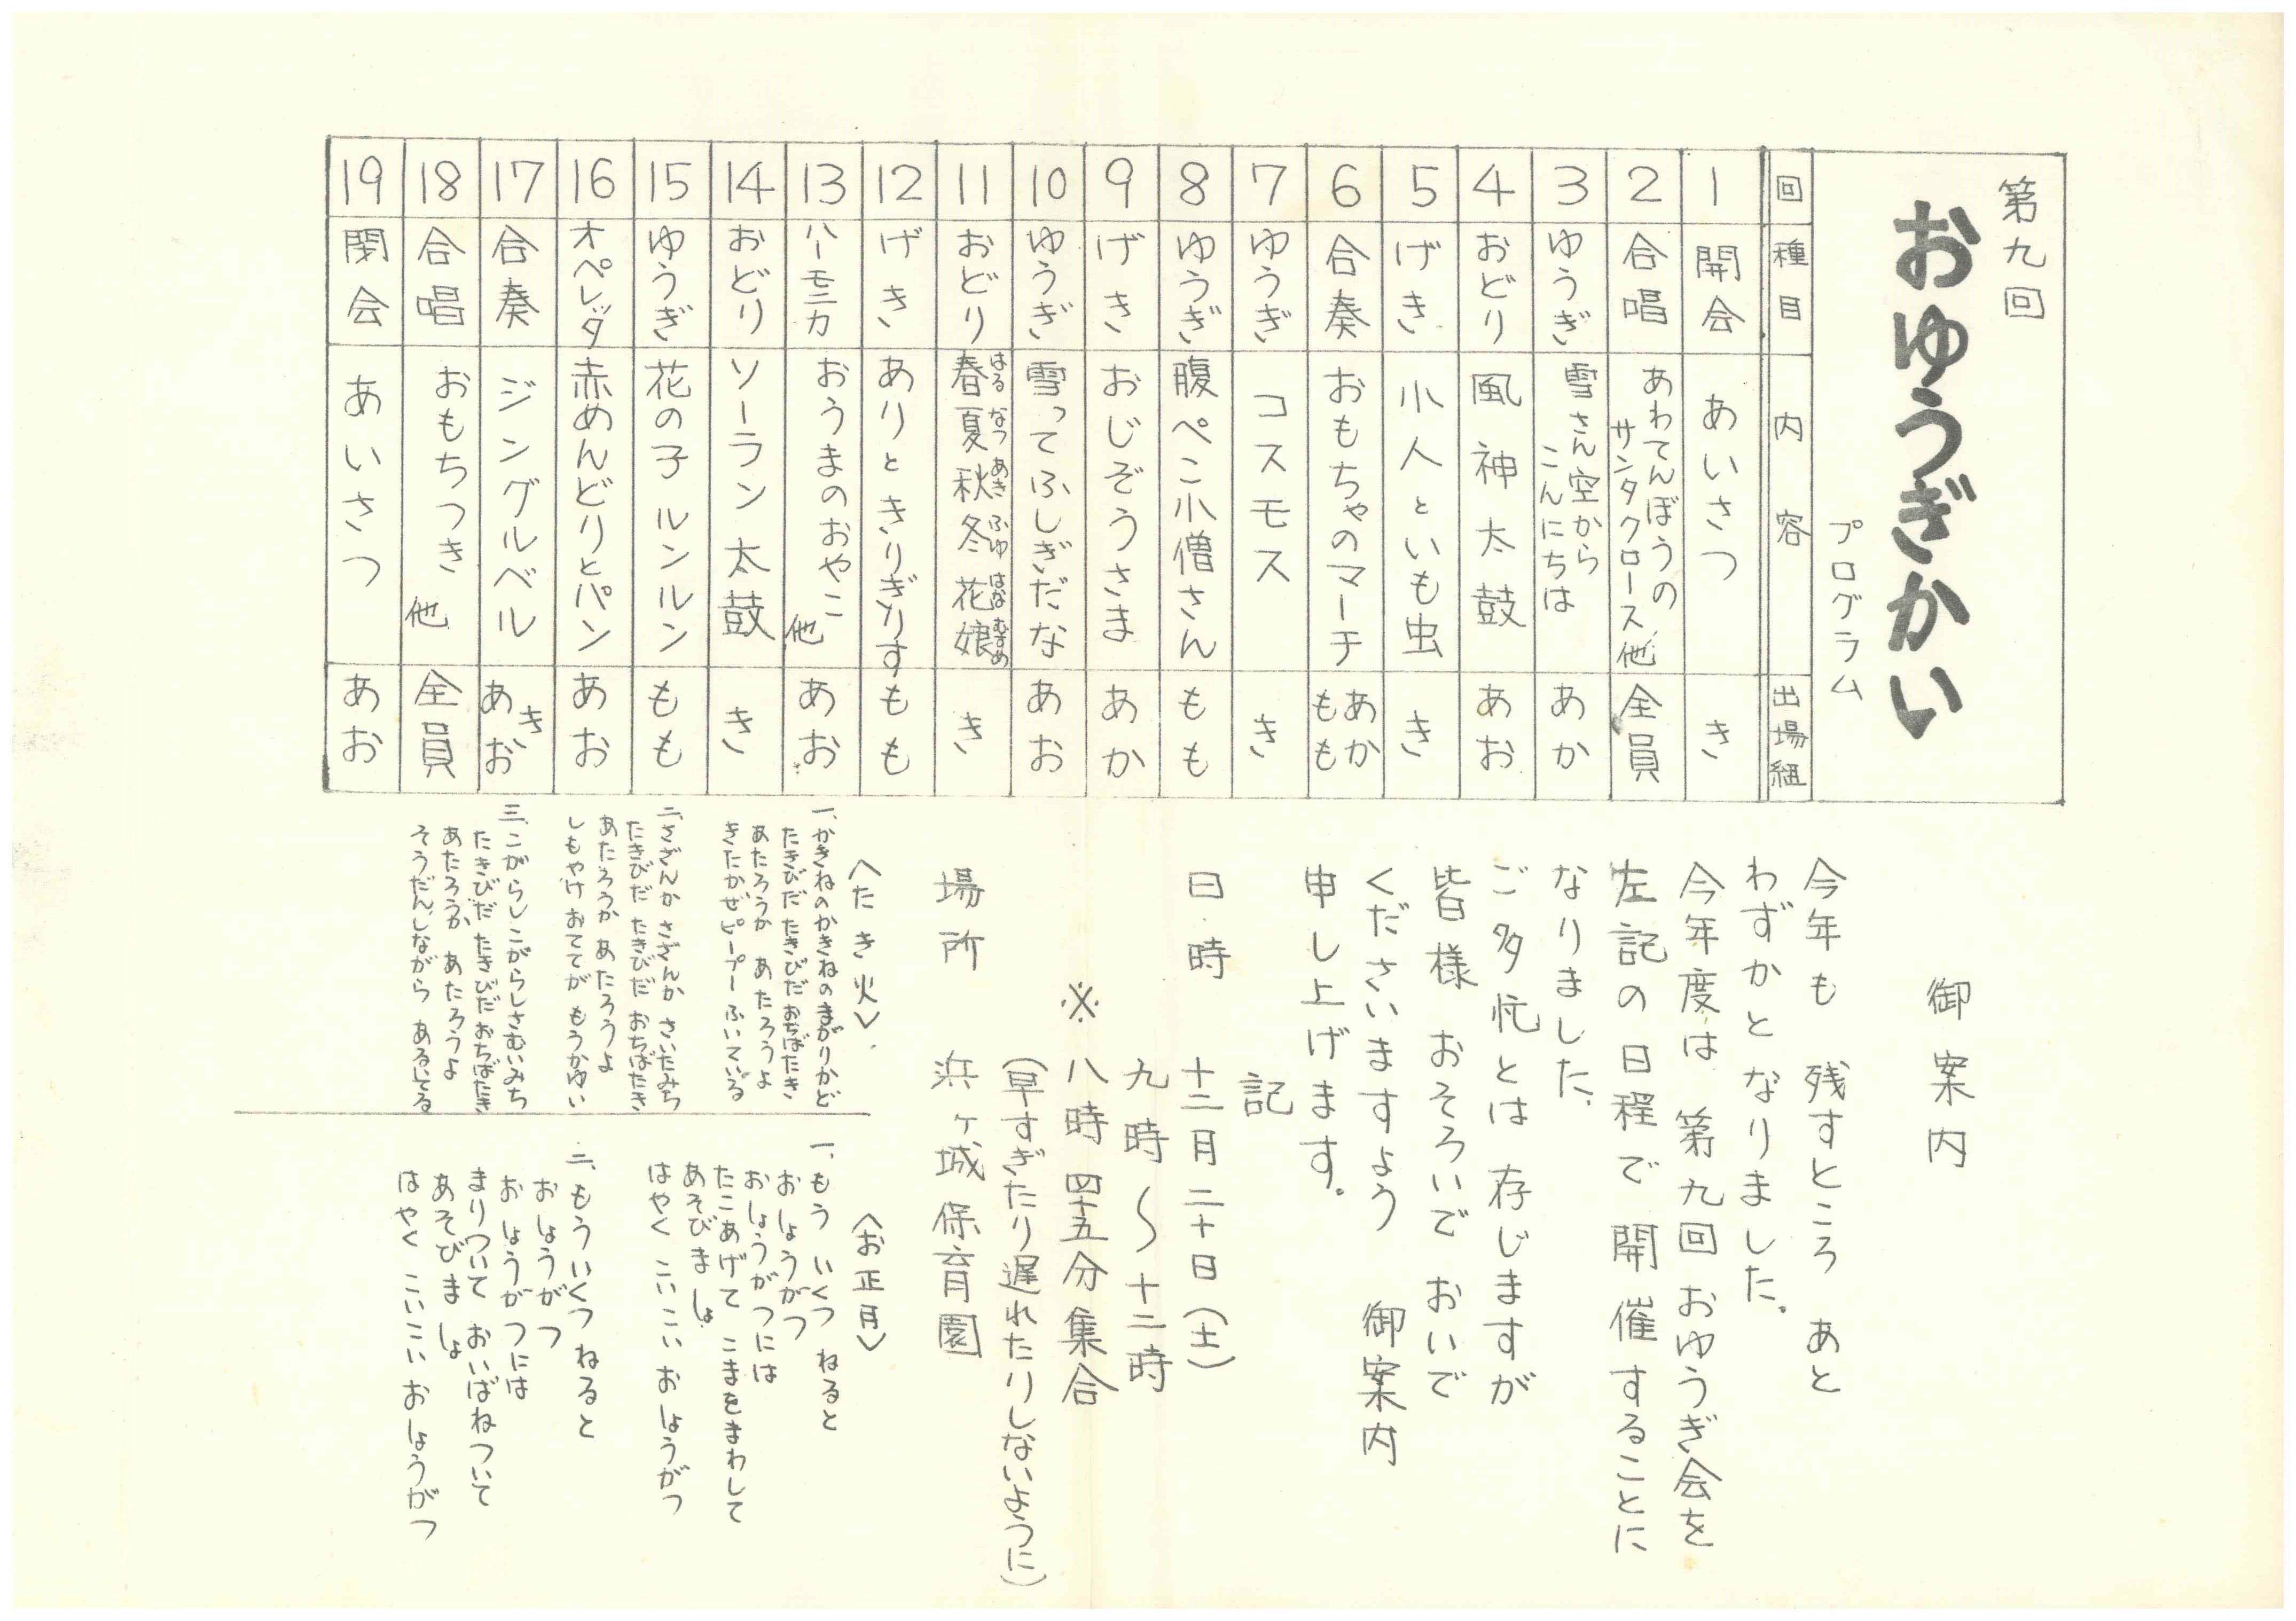 第九回
おゆうぎかい
プログラム
回 種目 内容 出場組
1 開会 あいさつ き
2 合唱 あわてんぼうの サンタクロース 他 全員
3 ゆうぎ 雪さん空から こんにちは あか
4 おどり 風神太鼓 あお
5 げき 小人といも虫 き
6 合奏 おもちゃのマーチ あか もも
7 ゆうぎ コスモス き
8 ゆうぎ 腹ペこ小僧さん もも
9 げき おじぞうさま あか
10 ゆうぎ 雪ってふしぎだな あお
11 おどり 春夏秋冬花娘 はるなつあきふゆはなむすめ き
12 げき ありときりぎりす もも
13 ハーモニカ おうまのおやこ 他 あお
14 おどり ソーラン太鼓 き
15 ゆうぎ 花の子ルンルン もも
16 オペレッタ 赤めんどりとパン あお
17 合奏 ジングルベル き あお
18 合唱 おもちつき 他 全員
19 閉会 あいさつ あお
御案内
今年も 残すところ あと
わずかとなりました。
今年度は 第九回 おゆうぎ会を
左記の日程で 開催することに
なりました。
ご多忙とは 存じますが
皆様 おそろいで おいで
くださいますよう 御案内
申し上げます。
記
日時 十二月二十日(土)
九時〜十二時
※ 八時四十五分集合
(早すぎたり遅れたりしないように)
場所 浜ヶ城保育園
〈たき火〉
一、かきねのかきねのまがりかど
たきびだ たきびだ おちばたき
あたろうか あたろうよ
きたかぜピープー ふいている
二、さざんか さざんか さいたみち
たきびだ たきびだ おちばたき
あたろうか あたろうよ
しもやけ おててが もうかゆい
三、こがらしこがらしさむいみち
たきびだ たきびだ おちばたき
あたろうか あたろうよ
そうだんしながら あるいてる
〈お正月〉
一、もう いくつ ねると
おしょうがつ
おしょうがつには
たこあげて こまをまわして
あそびましょ
はやく こいこい おしょうがつ
二、もういくつ ねると
おしょうがつ
おしょうがつには
まりついて おいばねついて
あそびましょ
はやく こいこい おしょうがつ